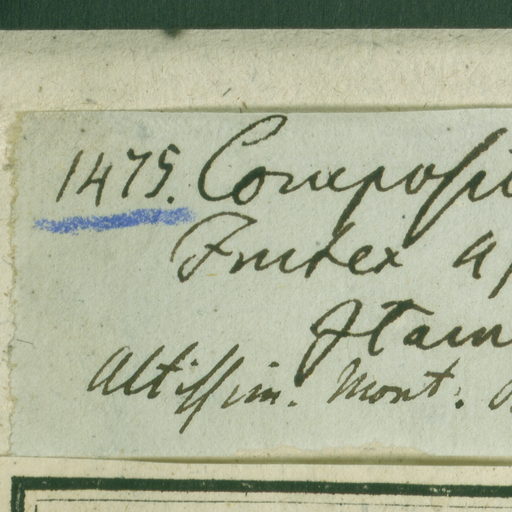 1475. Composi
Frutex a
Altissim. Mont.